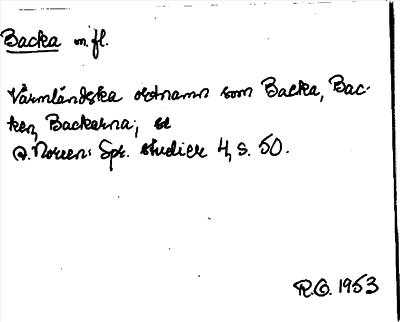 Backa m. fl.
Värmländska ortnamn som Backa, Bac-
ken, Backarna; se
A. Noreen: Spr. studier 4, s. 50.
R.O. 1953